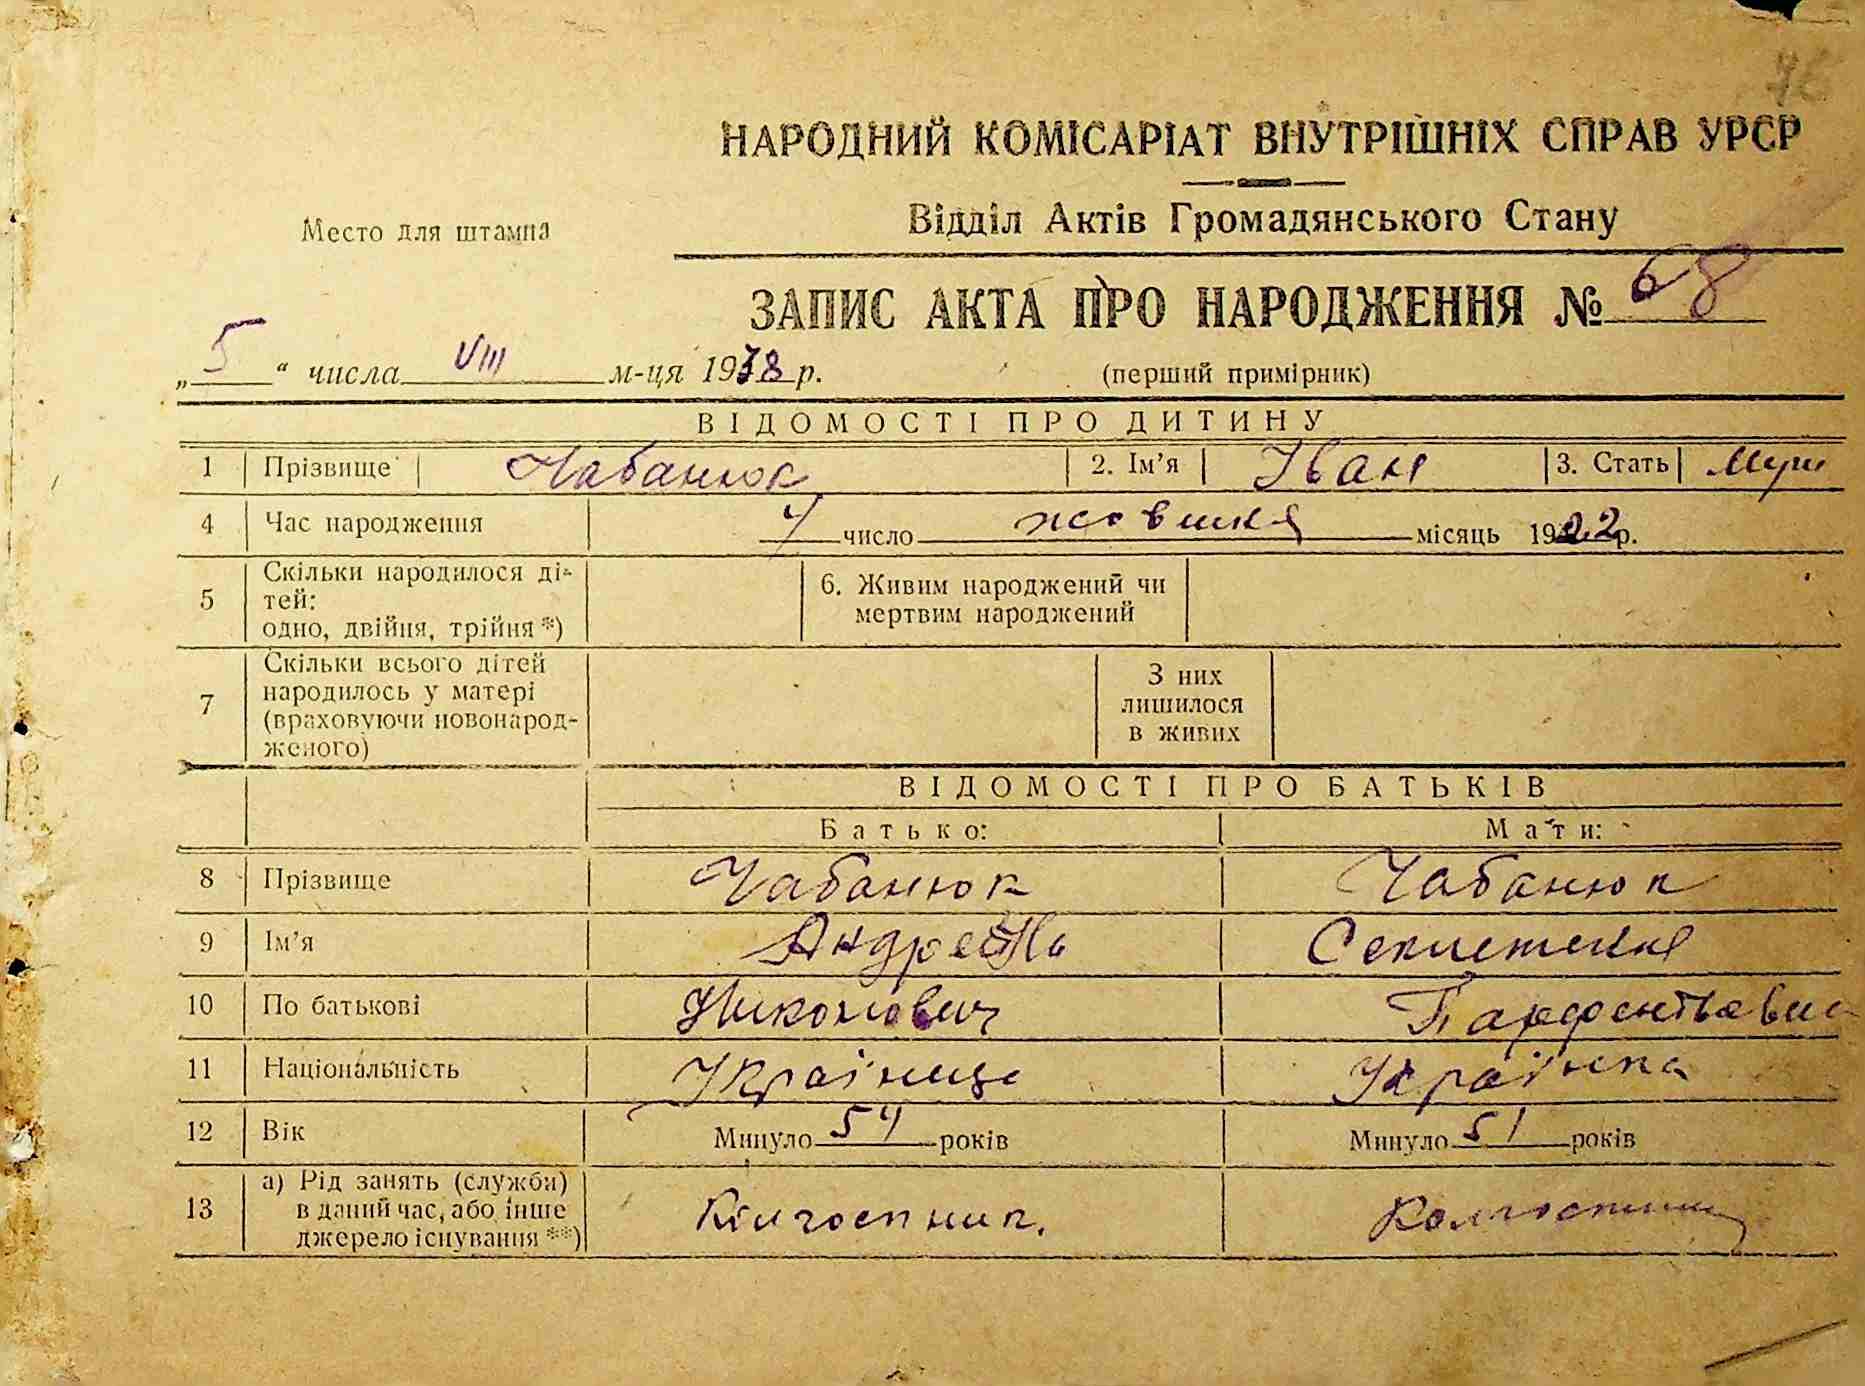 76
НАРОДНИЙ КОМІСАРІАТ ВНУТРІШНІХ СПРАВ УРСР
Відділ Актів Громадянського Стану
Место для штампа
ЗАПИС АКТА ПРО НАРОДЖЕННЯ № 68
„ 5 “ числа VIII м-ця 1938 р.
(перший примірник)
ВІДОМОСТІ ПРО ДИТИНУ
1 Прізвище Чабанюк 2. Ім’я Іван 3. Стать Муж
4 Час народження 7 число жовтня місяць 1922 р.
5 Скільки народилося ді-
тей:
одно, двійня, трійня *)
6. Живим народжений чи
мертвим народжений
7 Скільки всього дітей
народилось у матері
(враховуючи новонарод-
женого)
З них
лишилося
в живих
ВІДОМОСТІ ПРО БАТЬКІВ
Батько: Мати:
8 Прізвище Чабанюк Чабанюк
9 Ім’я Андрей
10 По батькові Никонович
11 Національність Українець Українка
12 Вік Минуло 54 років Минуло 51 років
13 а) Рід занять (служби)
в даний час, або інше
джерело існування **)
Колгоспник.